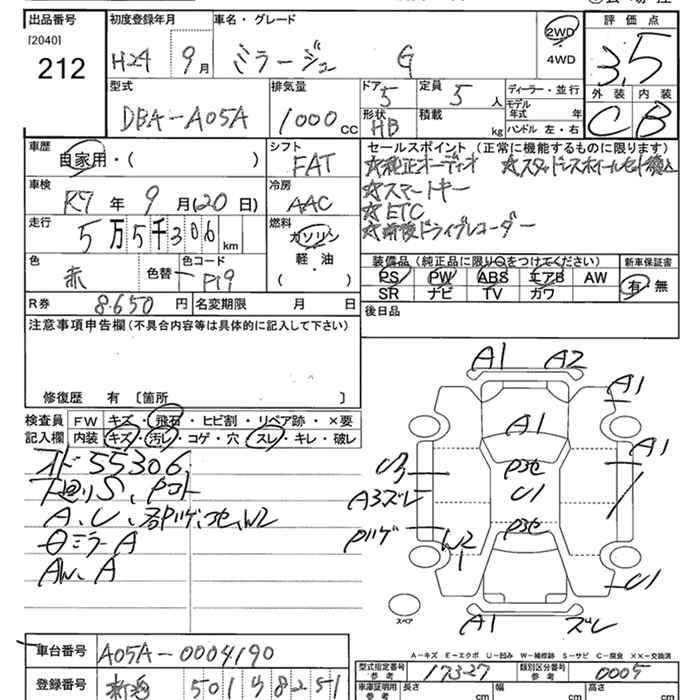 出品番号
[2040]
212
初度登録年月
H24 9月
車名・グレード
ミラージュ G
2WD
4WD
評価点
3.5
外装 内装
C B
型式
DBA-A05A
排気量
1000 cc
ドア
5
定員
5人
形状
HB
積載
kg
ディーラー・並行
モデル年式 年
ハンドル 左・右
車歴
自家用・( )
シフト
FAT
車検
R7年9月(20日)
冷房
AAC
走行
5万5千306km
燃料
ガソリン
・
軽油
( )
色
赤
色替
色コード
P19
R券 8.650円
名変期限 月 日
セールスポイント(正常に機能するものに限ります)
☆純正オーディオ ☆スタッドレスホイールセット積込
☆スマートキー
☆ETC
☆前後ドライブレコーダー
装備品(純正品に限り○をつけてください)
PS PW ABS エアB AW
SR ナビ TV カワ
新車保証書
有・無
後日品
注意事項申告欄(不具合内容等は具体的に記入して下さい)
修復歴 有〔箇所 〕
検査員記入欄
FW キズ・飛石・ヒビ割・リペア跡・×要
内装 キズ・汚レ・コゲ・穴・スレ・キレ・破レ
オド55306
下廻りS、
A、U、
ミラーA
A
A1 A2
A1
A1
A1
U1
A3ズレ
W2
U1
A1 ズレ
スペア
A-キズ E-エクボ U-凹み W-補修跡 S-サビ C-腐食 ××-交換済
車台番号 A05A-0004190
登録番号 新潟 501
型式指定番号 参考 17327
類別区分番号 参考 0005
車庫証明用 参考
長さ cm
幅 cm
高さ cm